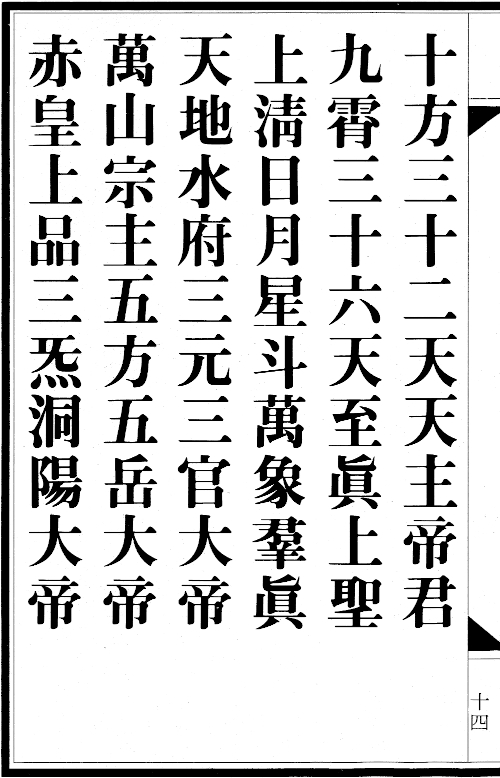 十方三十二天天主帝君
九霄三十六天至眞上聖
上淸日月星斗萬象羣眞
天地水府三元三官大帝
萬山宗主五方五岳大帝
赤皇上品三炁洞陽大帝
十四